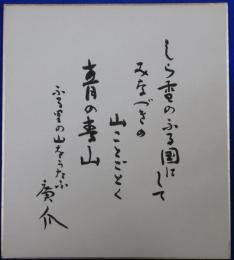 しら雪のふる国にして
みなづきの
山ことごとく
青の青山
ふる里の山をうたふ
廣爪